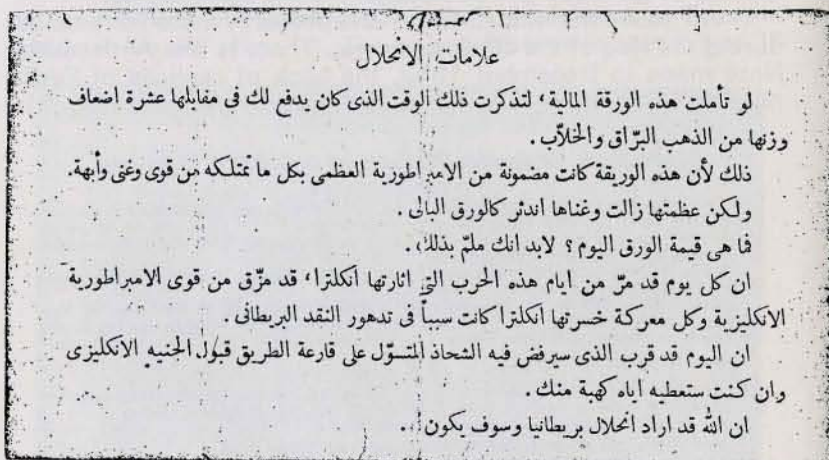 علامات الانحلال
لو تأملت هذه الورقة المالية، لتذكرت ذلك الوقت الذى كان يدفع لك فى مقابلها عشرة اضعاف
وزنها من الذهب البرّاق والخلاّب.
ذلك لأن هذه الوريقة كانت مضمونة من الامبراطورية العظمى بكل ما تمتلكه من قوى وغنى وأبهة.
ولكن عظمتها زالت وغناها اندثر كالورق البالى.
فما هى قيمة الورق اليوم؟ لابد أنك ملمّ بذلك.
ان كل يوم قد مرّ من ايام هذه الحرب التى اثارتها انكلترا، قد مزّق من قوى الامبراطورية
الانكليزية وكل معركة خسرتها انكلترا كانت سبباً فى تدهور النقد البريطانى.
ان اليوم قد قرب الذى سيرفض فيه الشحاذ المتسوّل على قارعة الطريق قبول الجنيه الانكليزى
وان كنت ستعطيه اياه كهبة منك.
ان الله قد اراد انحلال بريطانيا وسوف يكون.